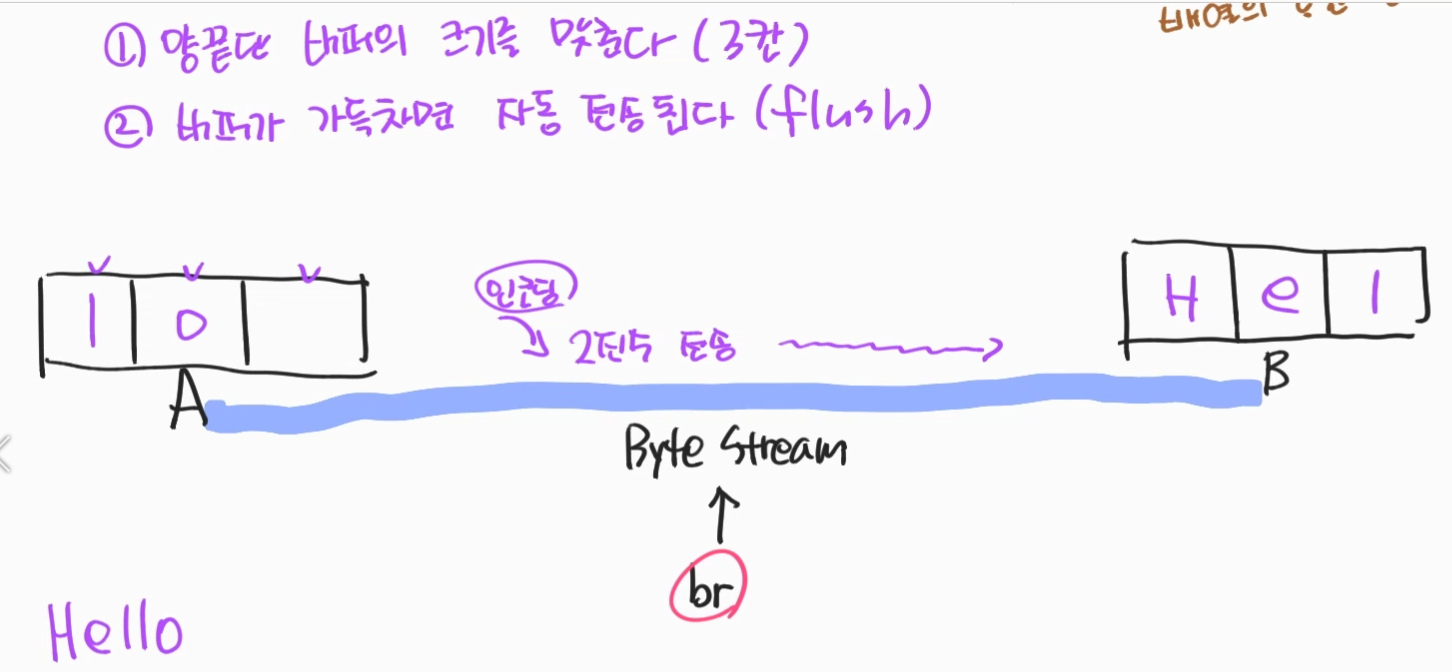 ① 양끝단 버퍼의 크기를 맞춘다 (3칸)
② 버퍼가 가득차면 자동 전송된다 (flush)
배열의
인코딩
2진수 전송
l o
H e l
A
B
Byte Stream
br
Hello